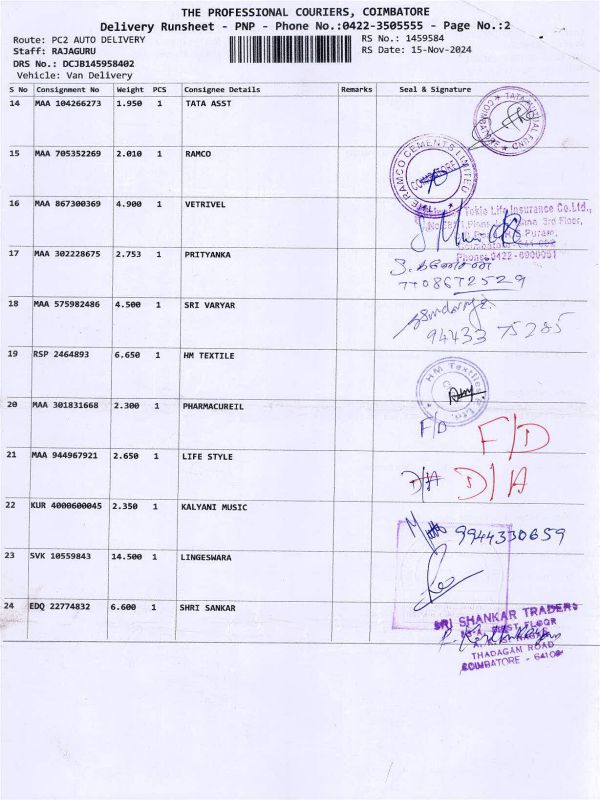 THE PROFESSIONAL COURIERS, COIMBATORE
Delivery Runsheet - PNP - Phone No.:0422-3505555 - Page No.:2
Route: PC2 AUTO DELIVERY
RS No.: 1459584
Staff: RAJAGURU
RS Date: 15-Nov-2024
DRS No.: DCJB145958402
Vehicle: Van Delivery
S No Consignment No Weight PCS Consignee Details Remarks Seal & Signature
14 MAA 104266273 1.950 1 TATA ASST
TATA MUTUAL FUND
15 MAA 705352269 2.010 1 RAMCO
THE RAMCO CEMENTS LIMITED
COIMBATORE
16 MAA 867300369 4.900 1 VETRIVEL
Tokio Life Insurance Co.Ltd.,
3rd Floor,
Puram,
Phone: 0422-6900051
17 MAA 302228675 2.753 1 PRITYANKA
7708672529
18 MAA 575982486 4.500 1 SRI VARYAR
94433 75285
19 RSP 2464893 6.650 1 HM TEXTILE
HM Textiles
20 MAA 301831668 2.300 1 PHARMACUREIL
F/D F/D
21 MAA 944967921 2.650 1 LIFE STYLE
D/A D/A
22 KUR 4000600045 2.350 1 KALYANI MUSIC
9944330659
23 SVK 10559843 14.500 1 LINGESWARA
24 EDQ 22774832 6.600 1 SHRI SANKAR
SRI SHANKAR TRADERS
FLOOR
THADAGAM ROAD
COIMBATORE